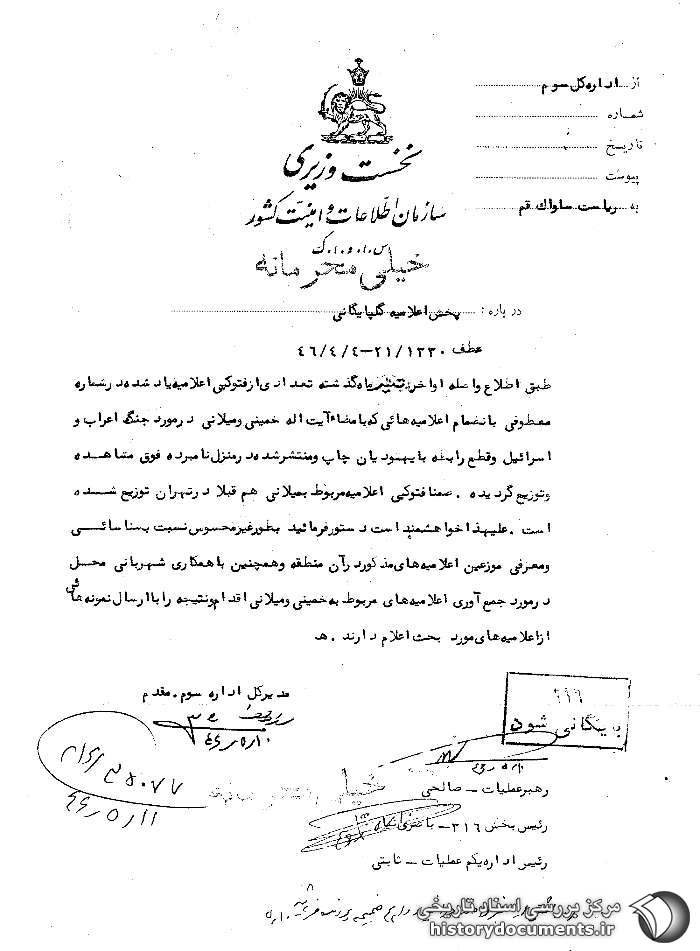 از اداره کل سوم
شماره
تاریخ
پیوست
به ریاست ساواک قم
نخست وزیری
سازمان اطلاعات و امنیت کشور
س.ا.و.ا.ک
خیلی محرمانه
درباره : پخش اعلامیه گلپایگانی
عطف ۲۱/۱۳۳۰–۴۶/۴/۴
طبق اطلاع واصله اواخر ماه گذشته تعدادی از فتوکپی اعلامیه یاد شده در شماره
معطوفی بانضمام اعلامیه هائی که با مضاء آیت اله خمینی و میلانی در مورد جنگ اعراب و
اسرائیل و قطع رابطه با یهودیان چاپ و منتشر شده در منزل نامبرده فوق مشاهده
و توزیع گردیده . ضمنا فتوکپی اعلامیه مربوط بمیلانی هم قبلا در تهران توزیع شده
است . علیهذا خواهشمند است دستور فرمائید بطور غیر محسوس نسبت بشناسائی
و معرفی موزعین اعلامیه های مذکور در آن منطقه و همچنین با همکاری شهربانی محل
در مورد جمع آوری اعلامیه های مربوط به خمینی و میلانی اقدام و نتیجه را با ارسال نمونه هائی
از اعلامیه های مورد بحث اعلام دارند . هـ
مدیرکل اداره سوم . مقدم
۳۱۶
بایگانی شود
خیلی محرمانه
رهبر عملیات – صالحی
رئیس بخش ۳۱۶ –
رئیس اداره یکم عملیات – ثابتی
مرکز بررسی اسناد تاریخی
historydocuments.ir